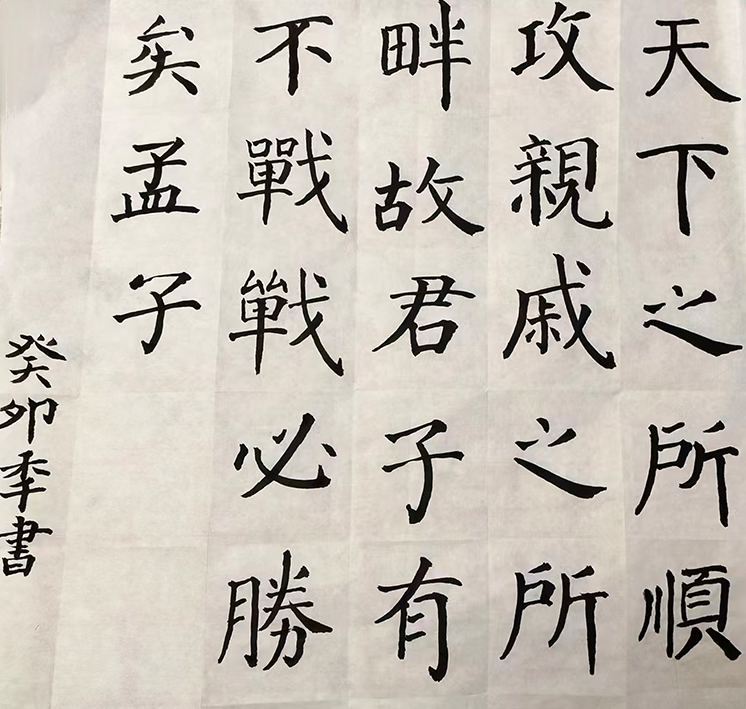 天下之所順
攻親戚之所
畔故君子有
不戰戰必勝
矣孟子
癸卯季書